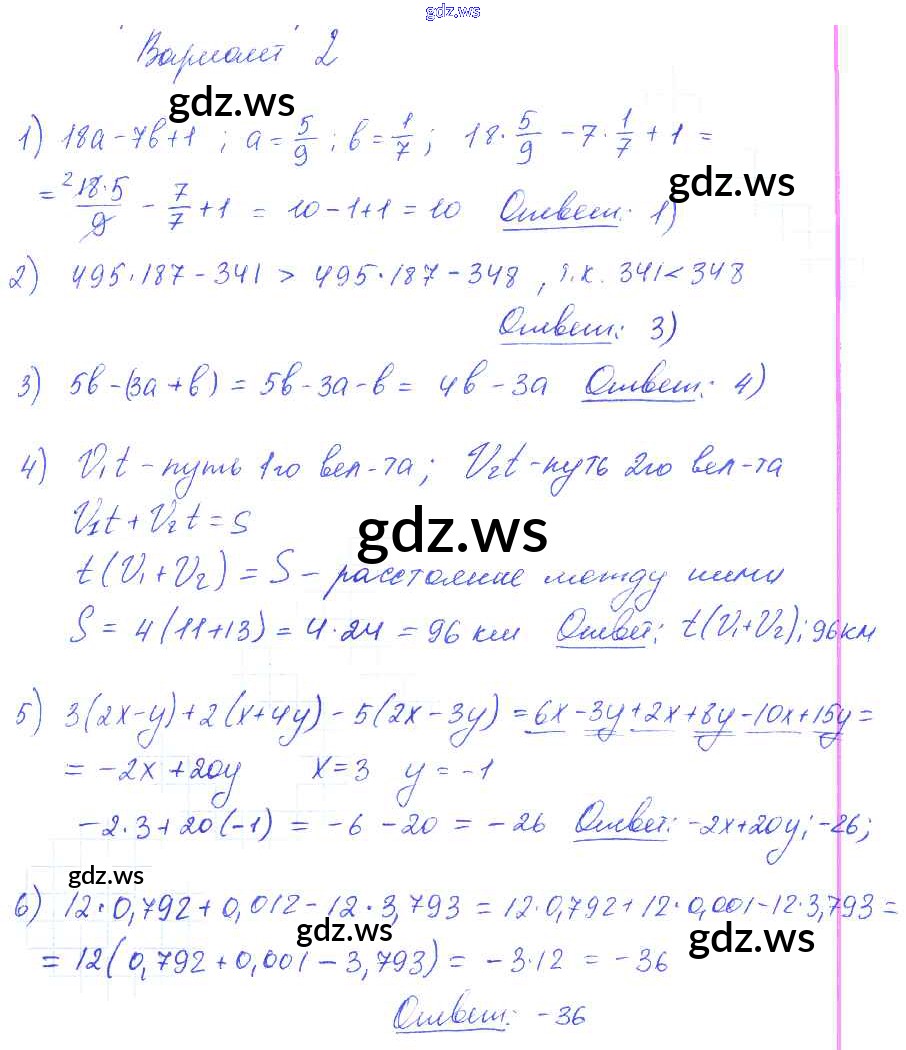 gdz.ws
Вариант 2
gdz.ws
1) 18a - 7b + 1 ; a = 5/9 ; b = 1/7 ; 18 · 5/9 - 7 · 1/7 + 1 =
gdz.ws
= ² 18·5/9 - 7/7 + 1 = 10 - 1 + 1 = 10 Ответ: 1)
2) 495·187 - 341 > 495·187 - 348 , т.к. 341 < 348
Ответ: 3)
3) 5b - (3a + b) = 5b - 3a - b = 4b - 3a Ответ: 4)
4) V₁t - путь 1го вел-та ; V₂t - путь 2го вел-та
V₁t + V₂t = S
gdz.ws
t(V₁ + V₂) = S - расстояние между ними
S = 4(11+13) = 4·24 = 96 км Ответ: t(V₁+V₂); 96км
5) 3(2x-y) + 2(x+4y) - 5(2x-3y) = 6x - 3y + 2x + 8y - 10x + 15y =
= -2x + 20y x = 3 y = -1
-2·3 + 20(-1) = -6 - 20 = -26 Ответ: -2x+20y; -26;
gdz.ws
6) 12·0,792 + 0,012 - 12·3,793 = 12·0,792 + 12·0,001 - 12·3,793 =
gdz.ws gdz.ws
= 12(0,792 + 0,001 - 3,793) = -3·12 = -36
Ответ: -36